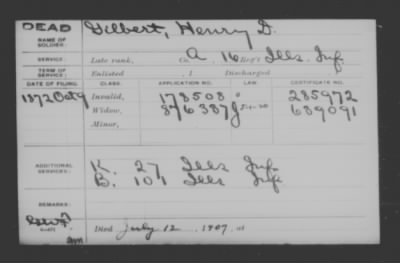 DEAD
NAME OF SOLDIER: Gilbert, Henry D.
SERVICE: Late rank, Co. A, 16 Reg't Ills. Inf.
TERM OF SERVICE: Enlisted , 1 Discharged
DATE OF FILING. CLASS. APPLICATION NO. LAW. CERTIFICATE NO.
1872 Oct 9 Invalid, 178508 285972
Widow, 876387 639091
Minor,
ADDITIONAL SERVICES: K. 27 Ills Inf.
B. 101 Ills Inf.
REMARKS:
Died July 12, 1907, at